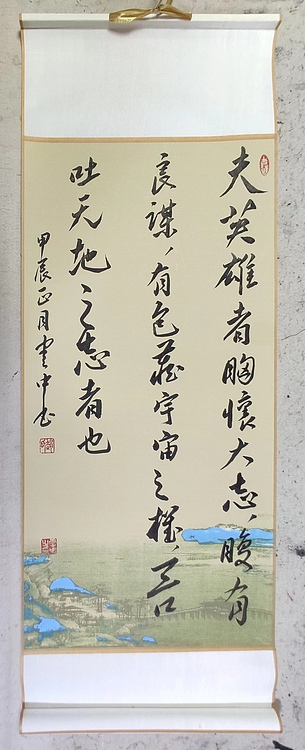 夫英雄者胸怀大志,腹有
良谋,有包藏宇宙之机,吞
吐天地之志者也
甲辰正月云中书